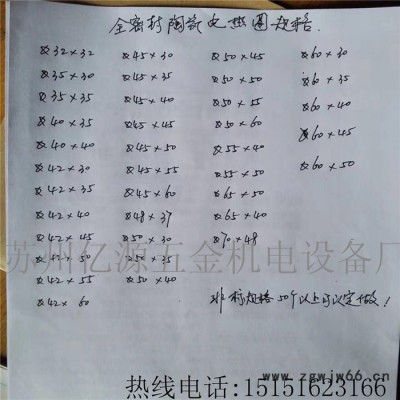 全密封陶瓷电热圈规格.
Φ32×32
Φ35×30
Φ35×35
Φ40×35
Φ40×40
Φ42×30
Φ42×35
Φ42×40
Φ42×45
Φ42×50
Φ42×55
Φ42×60
Φ45×30
Φ45×35
Φ45×40
Φ45×45
Φ45×50
Φ45×55
Φ45×60
Φ48×37
Φ50×30
Φ50×35
Φ50×40
Φ50×45
Φ50×55
Φ50×50
Φ50×60
Φ55×40
Φ55×50
Φ65×50
Φ65×40
Φ70×48
Φ60×30
Φ60×35
Φ60×40
Φ60×45
Φ60×50
非标规格50个以上可以定做!
苏州亿源五金机电设备厂
www.zgwjw66.cn
热线电话:15151623166